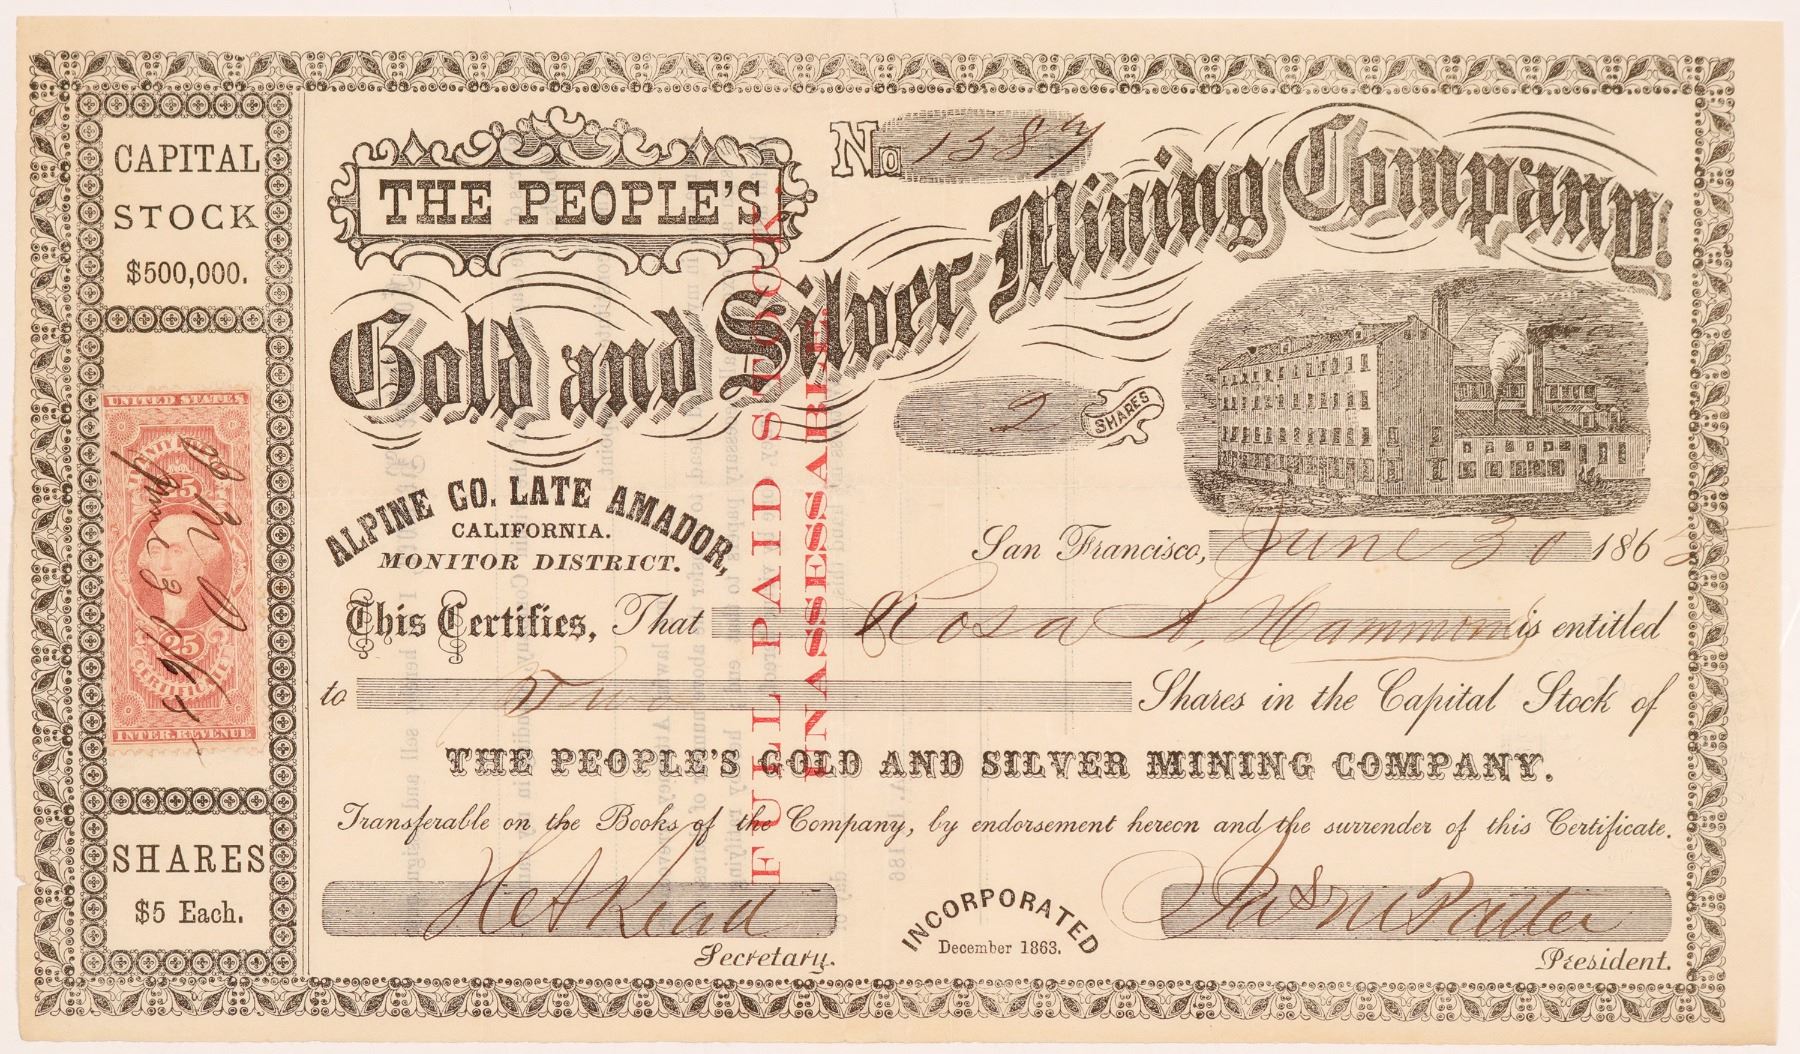 CAPITAL
STOCK
$500,000.
UNITED STATES
25 25
CERTIFICATE
INTER. REVENUE
SHARES
$5 Each.
THE PEOPLE'S
No 1587
Gold and Silver Mining Company.
2 SHARES
ALPINE CO. LATE AMADOR,
CALIFORNIA.
MONITOR DISTRICT.
San Francisco, June 30 1865
This Certifies, That Rosa A. Hammond is entitled
to Two Shares in the Capital Stock of
THE PEOPLE'S GOLD AND SILVER MINING COMPANY.
Transferable on the Books of the Company, by endorsement hereon and the surrender of this Certificate.
FULL PAID STOCK.
UNASSESSABLE
Secretary.
INCORPORATED
December 1863.
President.